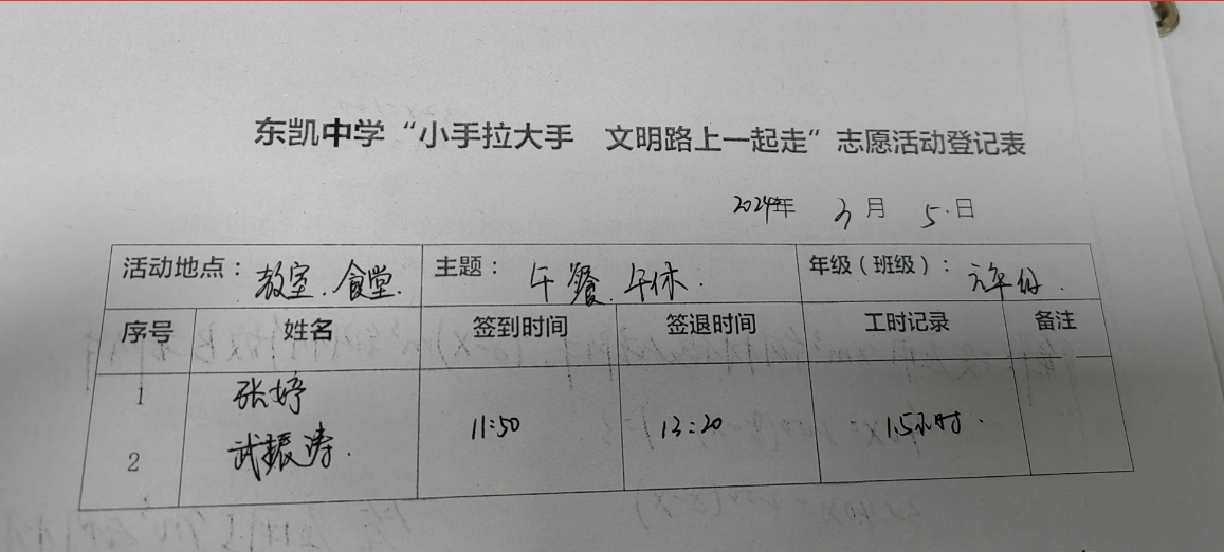 东凯中学“小手拉大手 文明路上一起走”志愿活动登记表
2024年 3月 5日
活动地点：教室.食堂. 主题：午餐.午休. 年级（班级）：
序号 姓名 签到时间 签退时间 工时记录 备注
1 张婷
11:50 13:20 1.5小时.
2 武振涛.